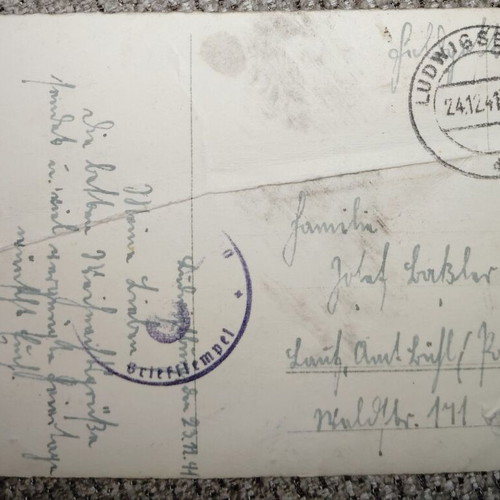 Feldpost
LUDWIGSB
24.12.41
Familie
Josef Baßler
Lauf, Amt Bühl/
Waldstr. 171
Briefstempel
den 23.12.41
Meine Lieben
Die besten Weihnachtsgrüße
sendet u. viel vergnügte Feiertage
wünscht Euch